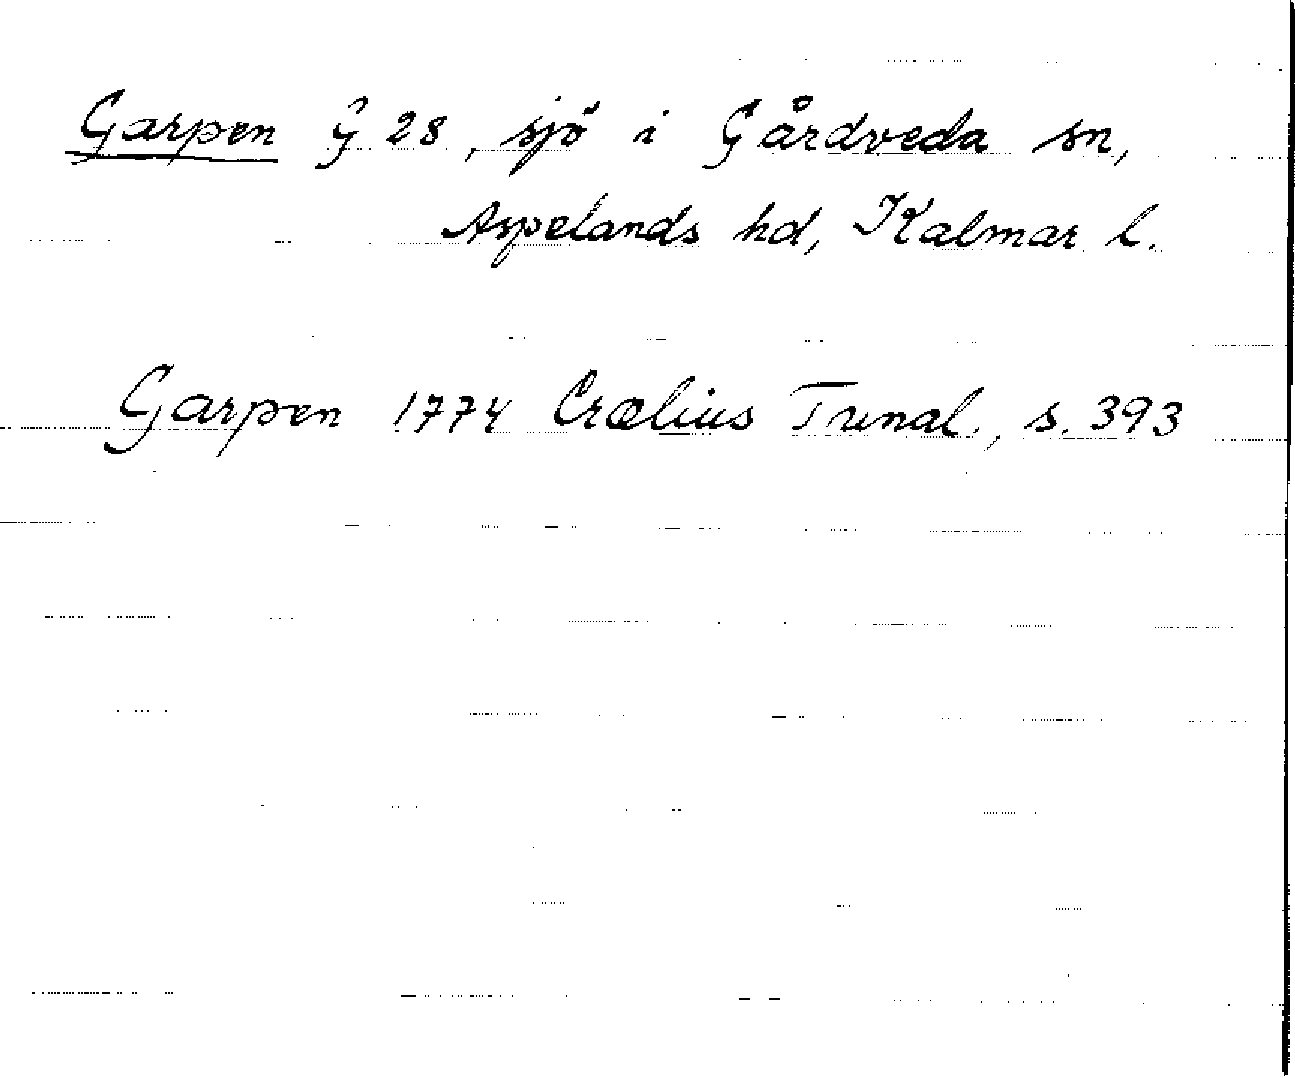 Garpen G 28, sjö i Gårdveda sn,
Aspelands hd, Kalmar l.
Garpen 1774 Crælius Tunal., s. 393